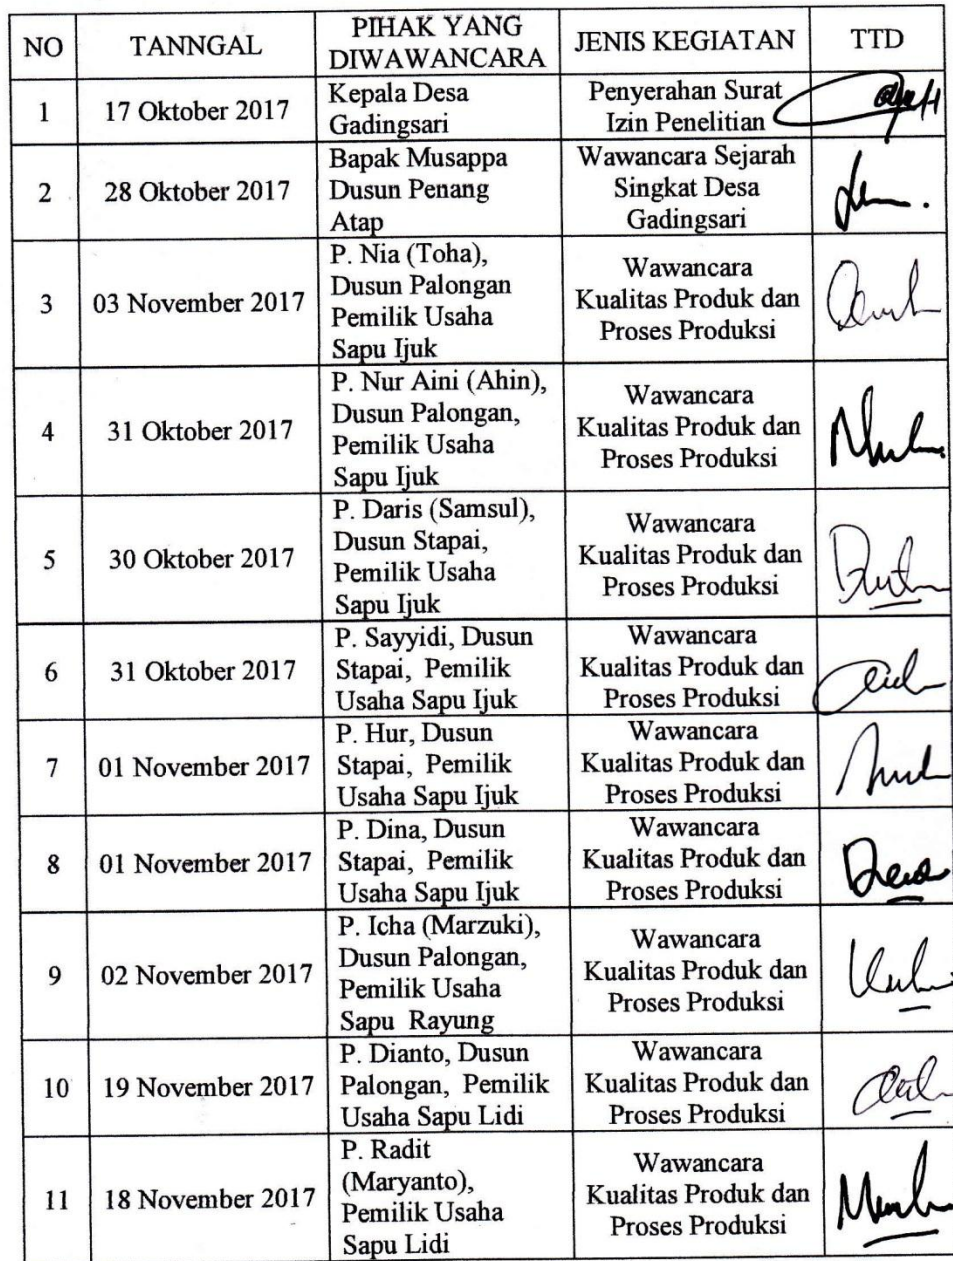 NO
TANNGAL
PIHAK YANG
DIWAWANCARA
JENIS KEGIATAN
TTD
1
17 Oktober 2017
Kepala Desa
Gadingsari
Penyerahan Surat
Izin Penelitian
2
28 Oktober 2017
Bapak Musappa
Dusun Penang
Atap
Wawancara Sejarah
Singkat Desa
Gadingsari
3
03 November 2017
P. Nia (Toha),
Dusun Palongan
Pemilik Usaha
Sapu Ijuk
Wawancara
Kualitas Produk dan
Proses Produksi
4
31 Oktober 2017
P. Nur Aini (Ahin),
Dusun Palongan,
Pemilik Usaha
Sapu Ijuk
Wawancara
Kualitas Produk dan
Proses Produksi
5
30 Oktober 2017
P. Daris (Samsul),
Dusun Stapai,
Pemilik Usaha
Sapu Ijuk
Wawancara
Kualitas Produk dan
Proses Produksi
6
31 Oktober 2017
P. Sayyidi, Dusun
Stapai, Pemilik
Usaha Sapu Ijuk
Wawancara
Kualitas Produk dan
Proses Produksi
7
01 November 2017
P. Hur, Dusun
Stapai, Pemilik
Usaha Sapu Ijuk
Wawancara
Kualitas Produk dan
Proses Produksi
8
01 November 2017
P. Dina, Dusun
Stapai, Pemilik
Usaha Sapu Ijuk
Wawancara
Kualitas Produk dan
Proses Produksi
9
02 November 2017
P. Icha (Marzuki),
Dusun Palongan,
Pemilik Usaha
Sapu Rayung
Wawancara
Kualitas Produk dan
Proses Produksi
10
19 November 2017
P. Dianto, Dusun
Palongan, Pemilik
Usaha Sapu Lidi
Wawancara
Kualitas Produk dan
Proses Produksi
11
18 November 2017
P. Radit
(Maryanto),
Pemilik Usaha
Sapu Lidi
Wawancara
Kualitas Produk dan
Proses Produksi